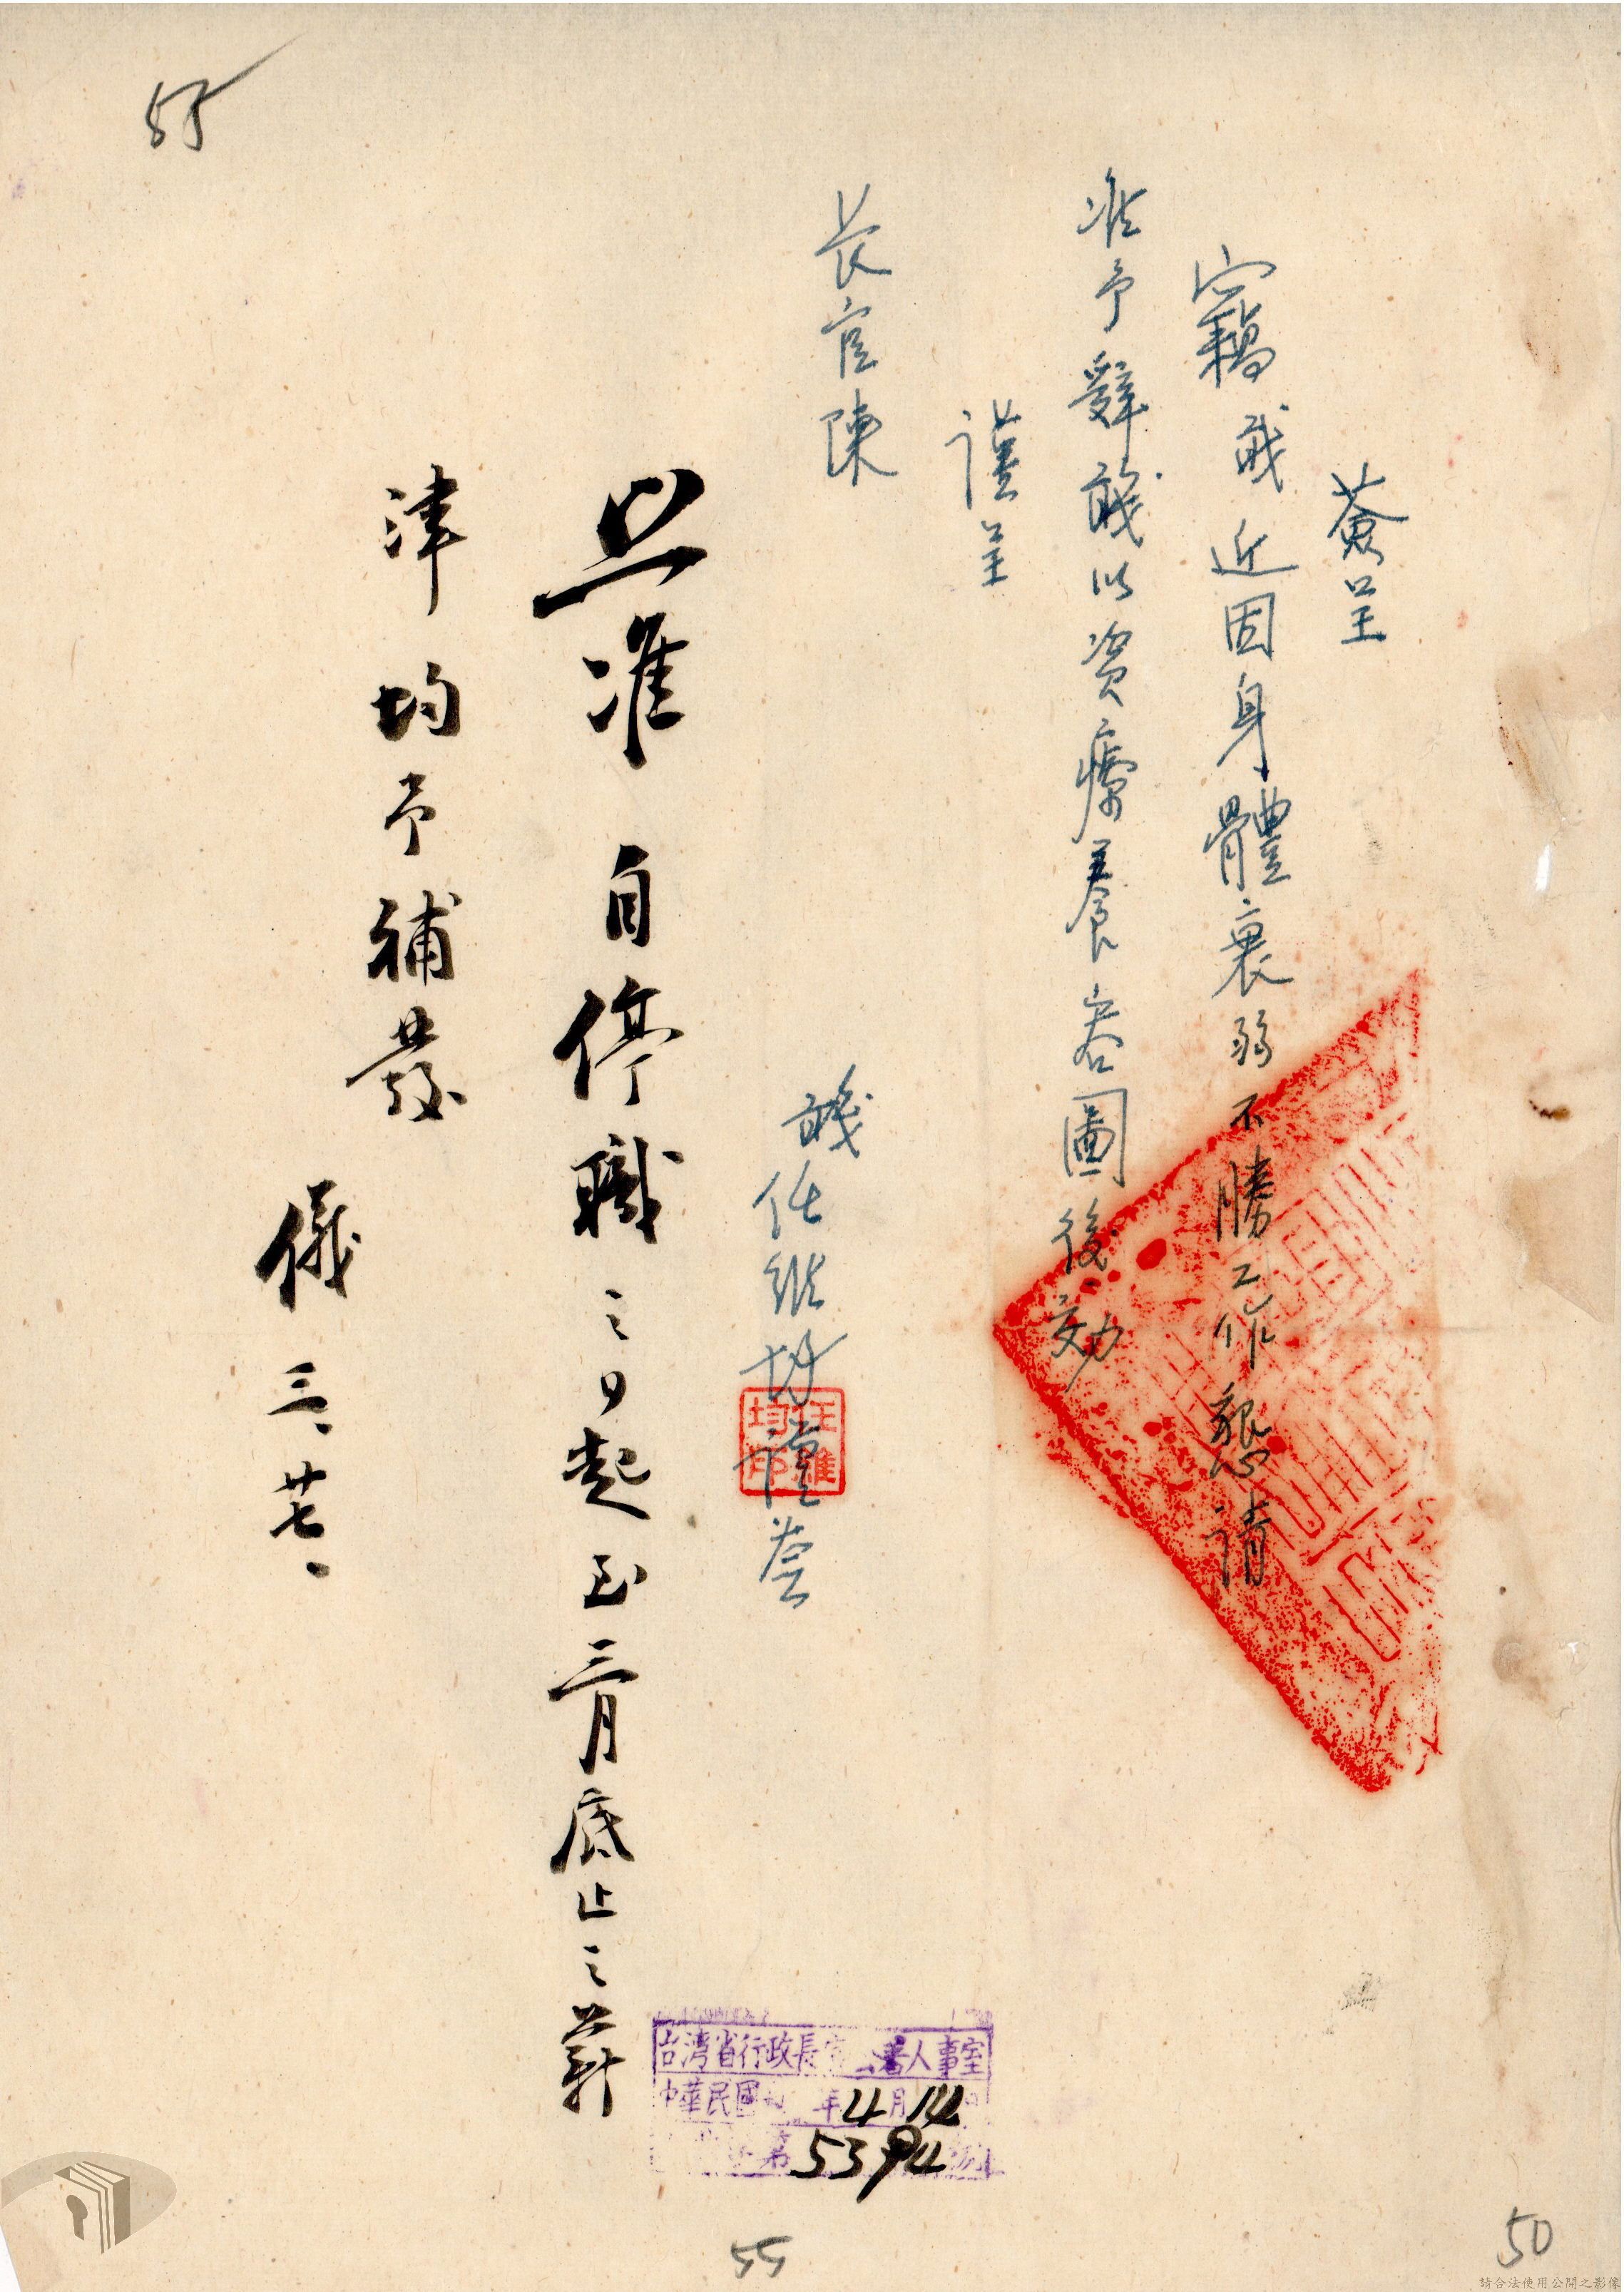 簽呈
竊職近因身體衰弱不勝工作懇請
准予辭職以資療養容圖後効
謹呈
長官陳
職任維均謹簽
任維均印
照准自停職之日起至三月底止之薪
津均予補發
儀 三、廿七、
台灣省行政長官公署人事室
中華民國 年4月14日
第5394號
55
50
請合法使用公開之影像